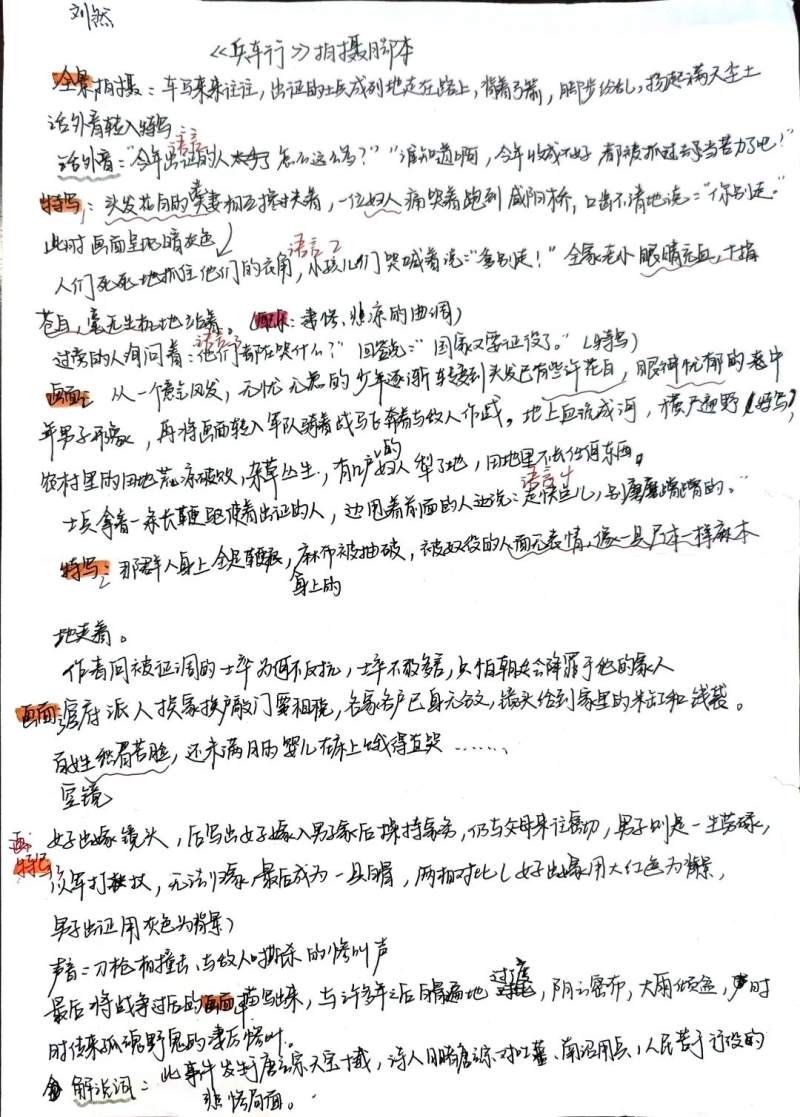 刘然
《兵车行》拍摄脚本
全景拍摄：车马来来往往，出征的士兵成列地走在路上，背着弓箭，脚步纷乱，扬起满天尘土
话外音转入特写
语言1
话外音："今年出征的人怎么这么多？""谁知道啊，今年收成不好 都被抓过去了当苦力了吧！"
特写1：头发花白的老夫妻相互搀扶着，一位妇人痛哭着跑到咸阳桥，口齿不清地说："你别走"
此时画面呈现暗灰色
语言2
人们死死地抓住他们的衣角，小孩儿们哭喊着说："爹别走！" 全家老小眼睛充血，十指
苍白，毫无生机地站着。（配乐：凄惨、悲凉的曲调）
语言3
过旁的人有问着："他们都在哭什么？" 回答说："国家又要征役了。"（特写）
画面2 从一个意气风发，无忧无虑的少年逐渐转变到头发已有些许花白，眼神忧郁的老中
年男子形象，再将画面转入军队骑着战马飞奔着与敌人作战。地上血流成河，横尸遍野（特写），
农村里的田地荒凉破败，杂草丛生，有几户的妇人犁了地，田地里不长任何东西。
语言4
士兵拿着一条长鞭驱使着出征的人，边甩着前面的人边说："走快点儿，别磨磨蹭蹭的。"
特写2：那群人身上全是鞭痕，身上的麻布被抽破，被奴役的人面无表情，像一具尸体一样麻木
地走着。
作者问被征调的士卒为何不反抗，士卒不敢多言，只怕朝廷会降罪于他的家人
画面3 官府派人挨家挨户敲门要租税，各家各户已身无分文，镜头给到家里的米缸和钱袋。
百姓愁眉苦脸，还未满月的婴儿在床上饿得直哭………
空镜
画 女子出嫁镜头，后写出女子嫁入男子家后操持家务，仍与父母来往密切，男子则是一生劳碌，
特写3 从军打仗，无法归家，最后成为一具白骨，两相对比（女子出嫁用大红色为背景，
男子出征用灰色为背景）
声音：刀枪相撞击、与敌人嘶杀的惨叫声
最后将战争过后的画面描写出来，与许多年之后白骨遍地过渡，阴云密布，大雨倾盆，时
时传来孤魂野鬼的凄厉惨叫。
解说词：此事件发生于唐玄宗天宝十载，诗人目睹唐玄宗对吐蕃、南诏用兵，人民苦于行役的
悲惨局面。